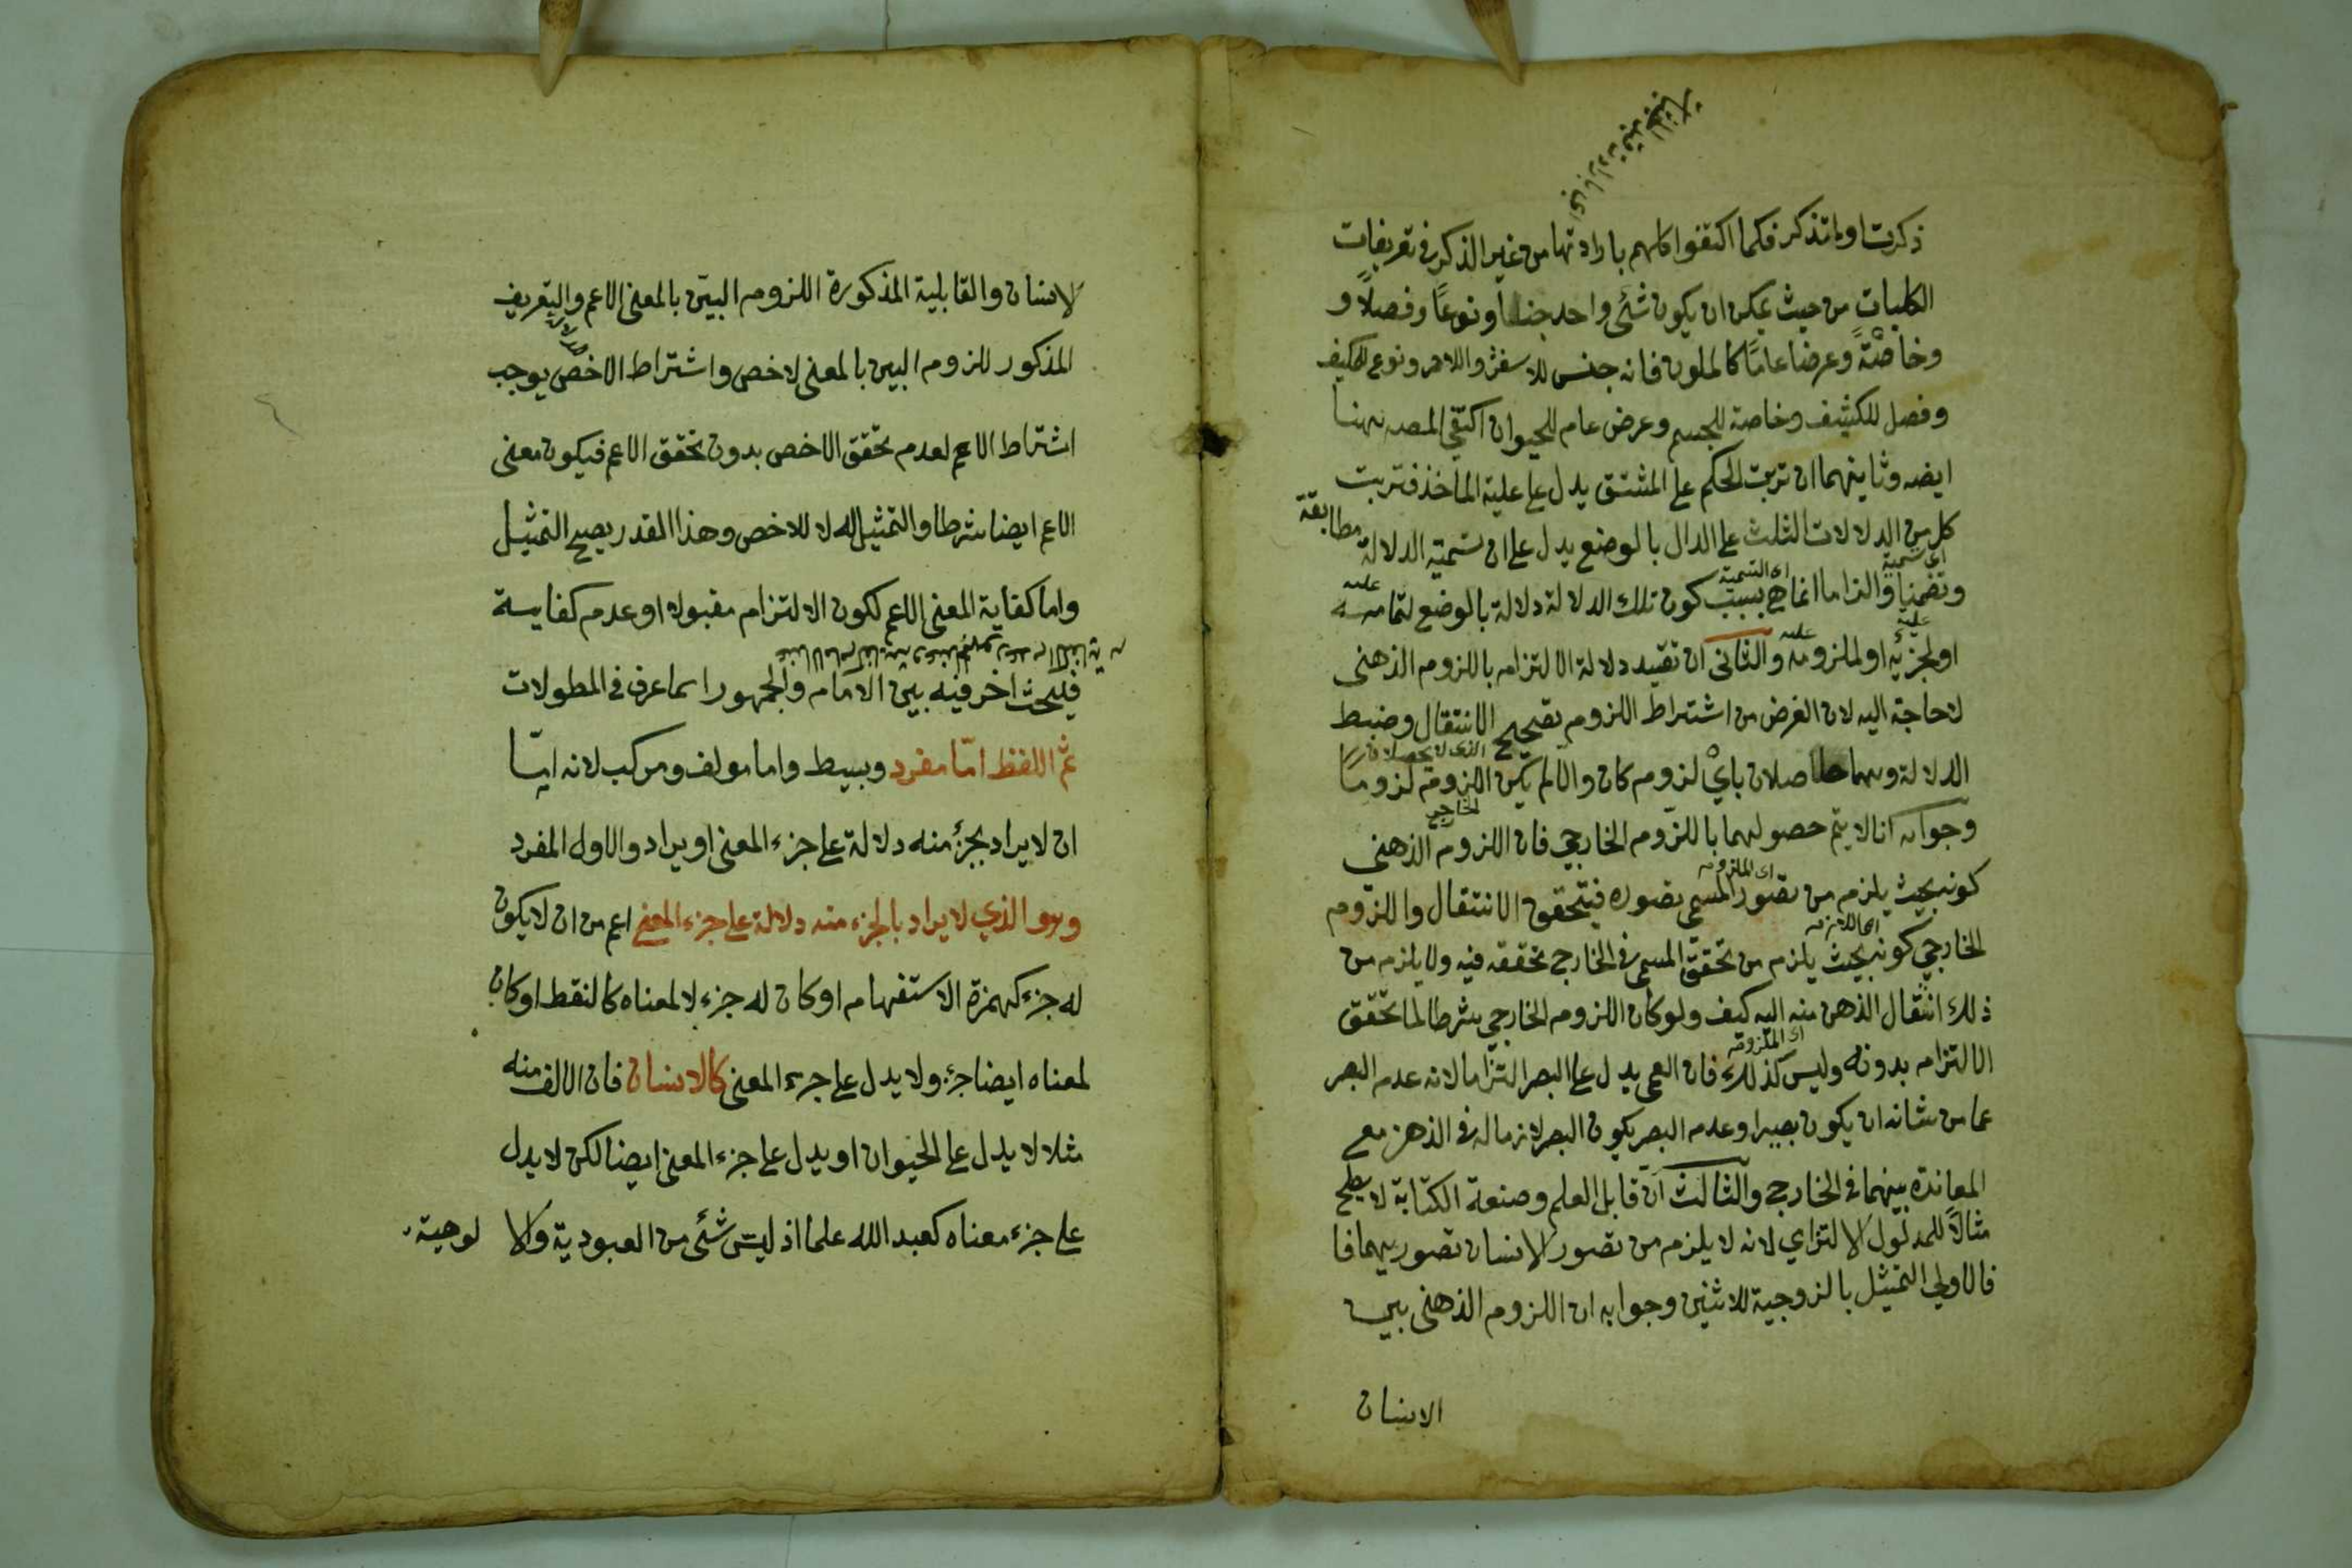 ذكرت او ما تذكر فكما اكتفوا كلهم بارادتها من غير الذكر في تعريفات
الكليات من حيث يمكن ان يكون شئ واحد جنسا او نوعاً وفصلاً و
وخاصّةً وعرضا عامًا كالملون فانه جنس للاسفر والاحمر ونوع للمكيف
وفصل للكثيف وخاصة للجسم وعرض عام للحيوان اكتفى المصه ههنا
ايضه وثانيهما ان ترتب الحكم على المشتق يدل على علية المأخذ فترتب
كل من الدلالات الثلث على الدال بالوضع يدل على ان تسمية الدلالة مطابقة
اى تسمية اى التسمية عليه
وتضمنا والتزاما انما هي بسبب كون تلك الدلالة دلالة بالوضع لتمامه
عليه عليه
او لجزئه او لملزومه والثانى ان تقييد دلالة الالتزام باللزوم الذهنى
لا حاجة اليه لان الغرض من اشتراط اللزوم تصحيح الانتقال وضبط
الدلالة وهما حاصلان باي لزوم كان والا لم يكن اللزوم لزومًا
الخارجي
وجوابه انا لا يتم حصولهما باللزوم الخارجي فان اللزوم الذهني
اى الملزوم
كونه بحيث يلزم من تصور المسمى تصوره فيتحقق الانتقال واللزوم
الخارجي كونه بحيث يلزم من تحقق المسمى في الخارج تحققه فيه ولا يلزم من
ذلك انتقال الذهن منه اليه كيف ولو كان اللزوم الخارجي شرطا لما تحقق
اى الملزوم
الالتزام بدونه وليس كذلك فان العمى يدل على البصر التزاما لانه عدم البصر
عما من شانه ان يكون بصيرا وعدم البصر يكون البصر لازما له في الذهن مع
المعاندة بينهما في الخارج والثالث ان قابل العلم وصنعة الكتابة لا يصلح
مثالاً للمدلول الالتزامي لانه لا يلزم من تصور الانسان تصورهما فا
فالاولى التمثيل بالزوجية للاثنين وجوابه ان اللزوم الذهنى بين
الانسان
لانسان والقابلية المذكورة اللزوم البيّن بالمعنى الاعم والتعريف
المذكور للزوم البين بالمعنى لاخص واشتراط الاخص يوجب
اشتراط الاعم لعدم تحقق الاخص بدون تحقق الاعم فيكون معنى
الاعم ايضا شرطا والتمثيل له لا للاخص وهذا المقدر يصح التمثيل
واما كفاية المعنى الاعم لكون الالتزام مقبولا او عدم كفايته
فلبحث اخر فيه بين الامام والجمهور اسما عرف في المطولات
ثم اللفظ امّا مفرد وبسيط واما مولف ومركب لانه امّا
ان لا يراد بجزء منه دلالة على جزء المعنى او يراد والاول المفرد
وهو الذي لا يراد بالجزء منه دلالة على جزء المعنى اعم من ان لا يكون
له جزء كهمزة الاستفهام او كان له جزء لا لمعناه كالنقط او كان
لمعناه ايضا جزء ولا يدل على جزء المعنى كالانسان فان الالف منه
مثلا لا يدل على الحيوان او يدل على جزء المعنى ايضا لكن لا يدل
على جزء معناه كعبد الله علما اذ ليس شئ من العبودية والا لوهية